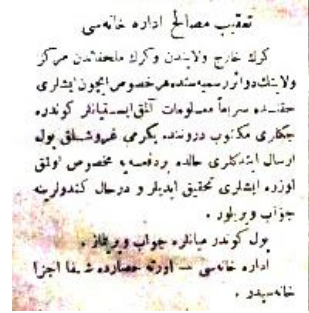 تعقيب مصالح اداره خانه‌سى
كرك خارج ولايتدن وكرك ملحقاتدن مركز
ولايتك دوائر رسميه‌سنده هر خصوص ايچون ايشلرى
حقنده سريعاً معلومات آلمق ايستيانلر كوندره
جكلرى مكتوب دروننده يكرمى غروشلق پول
ارسال ايتدكلرى حالده بر دفعه‌يه مخصوص اولمق
اوزره ايشلرى تحقيق ايديلور و درحال كندولرينه
جواب ويريلور .
پول كوندرميانلره جواب ويريلمز .
اداره خانه‌سى — اورته حصارده شفا اجزا
خانه‌سيدر .